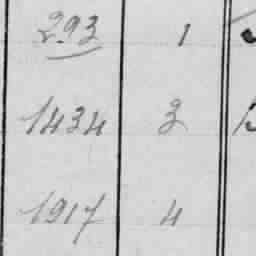 293 1
1434 3
1917 4